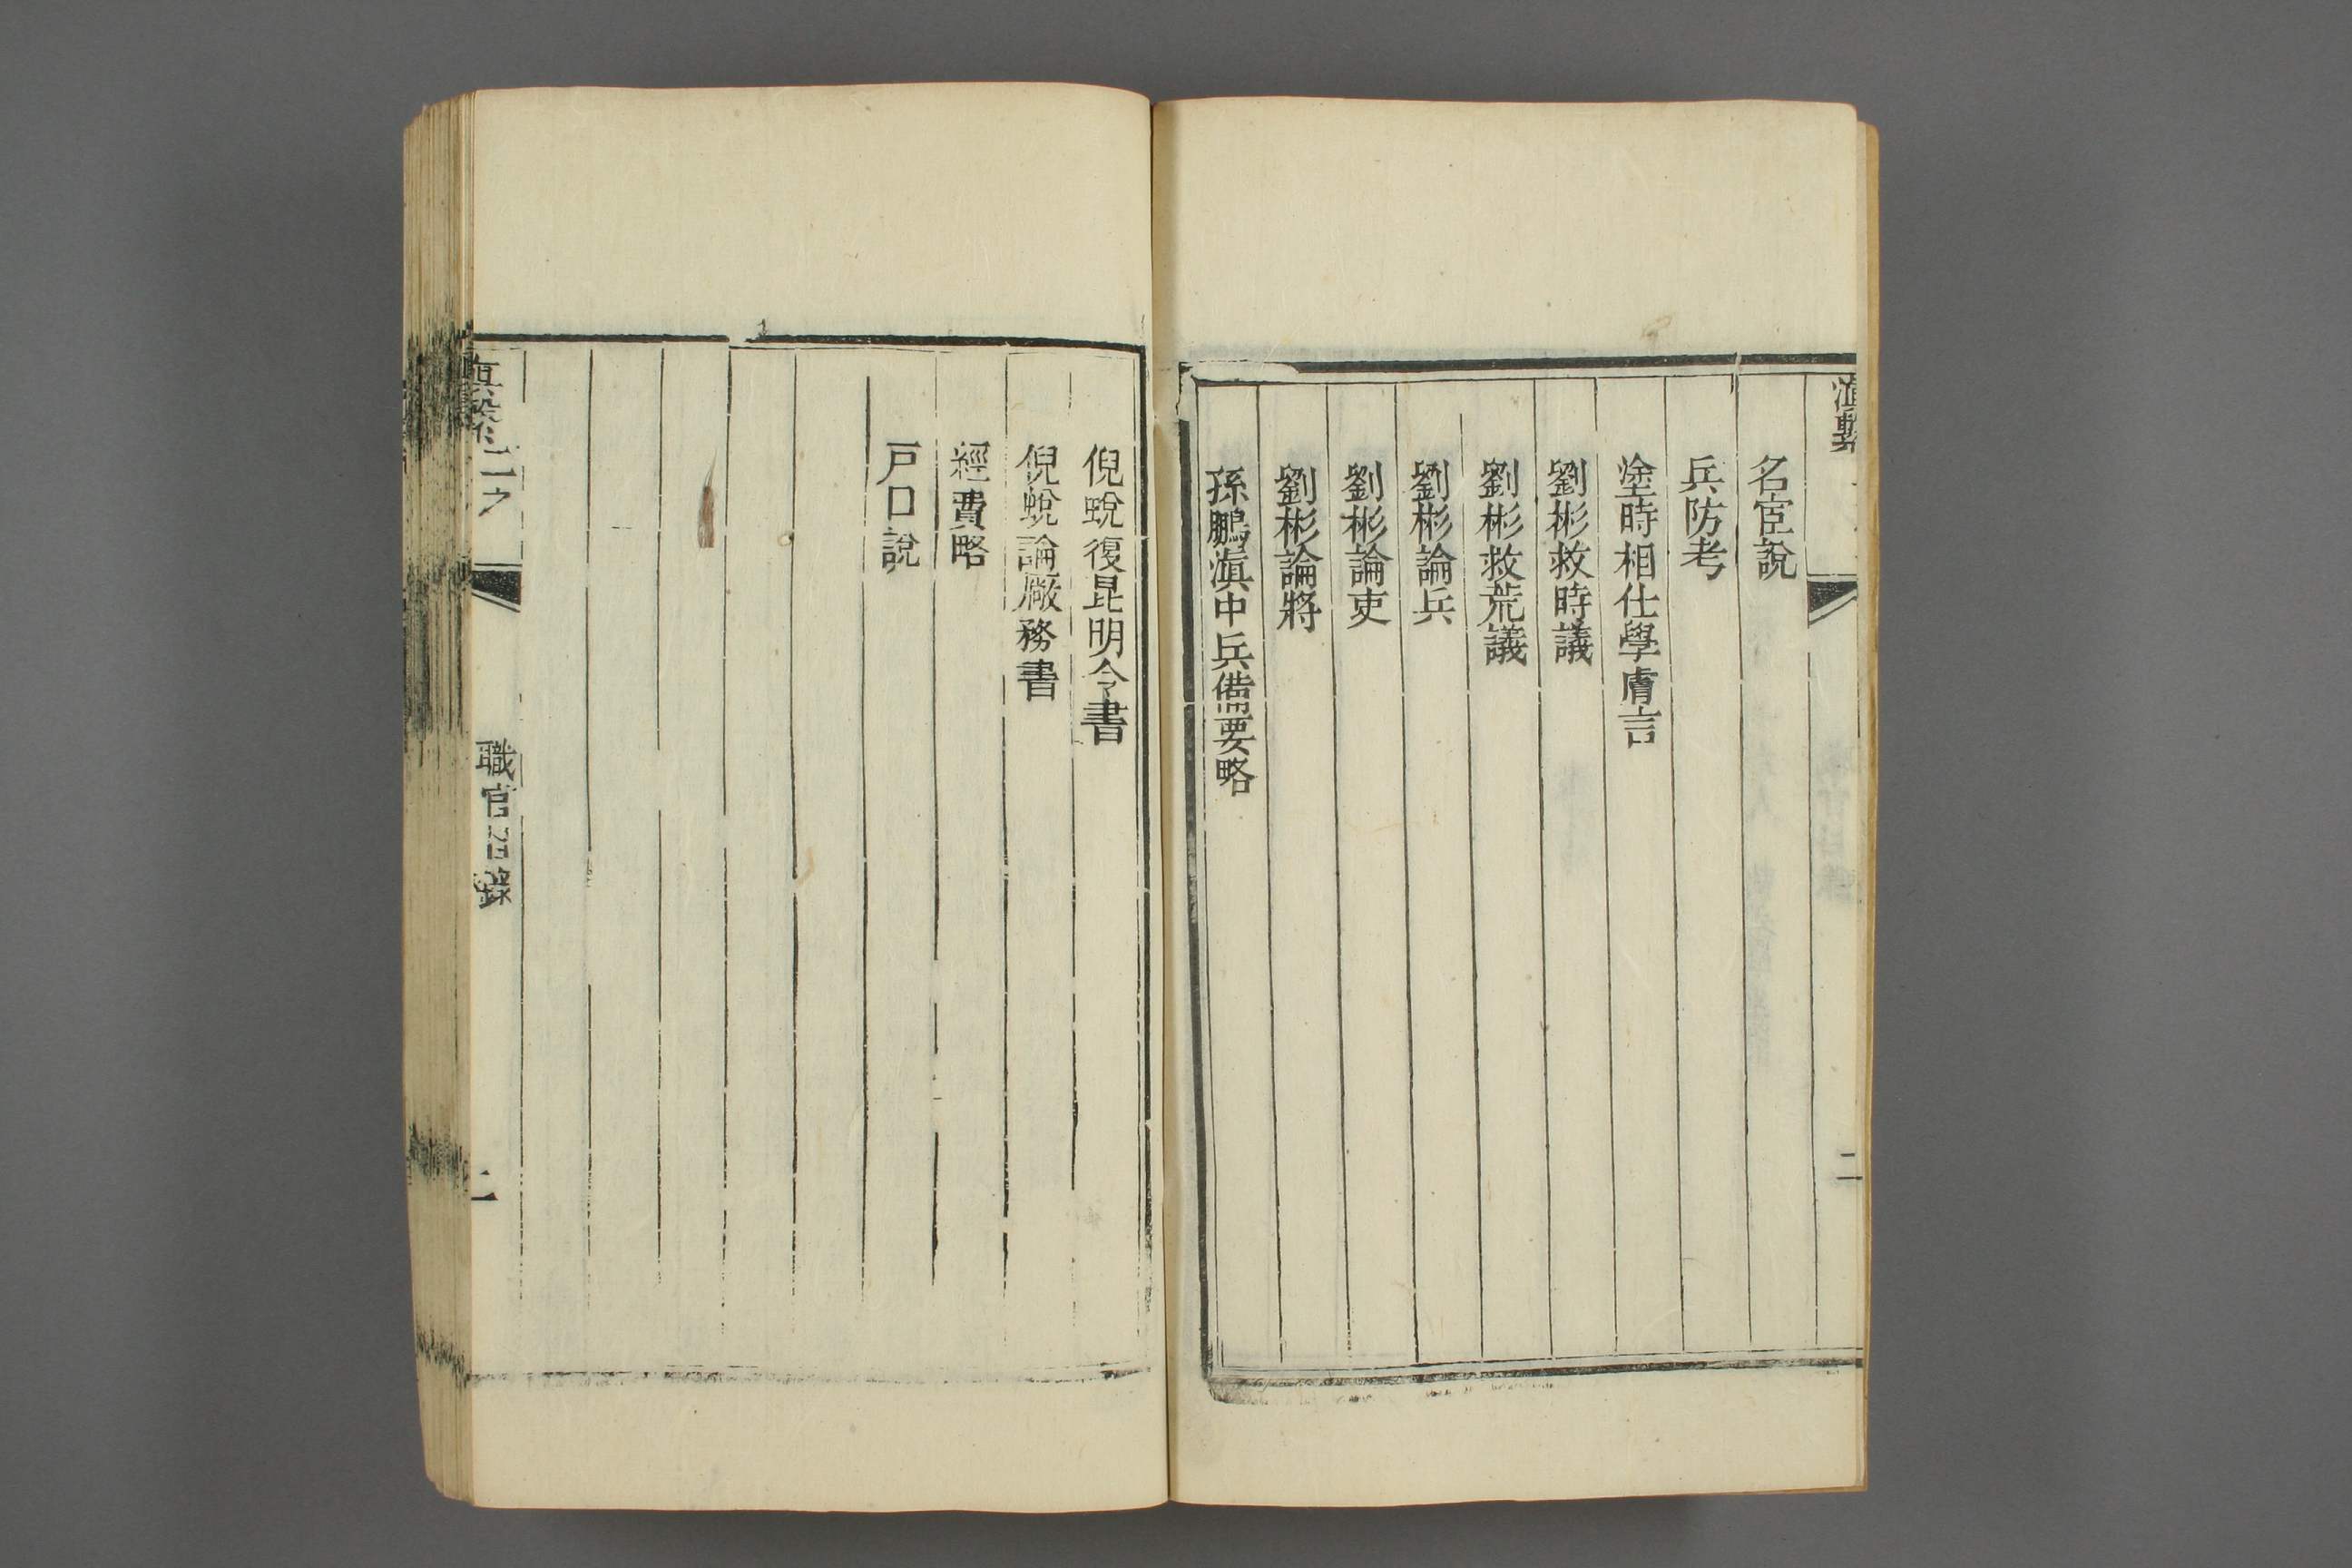 滇繫
二
名宦說
兵防考
塗時相仕學膚言
劉彬救時議
劉彬救荒議
劉彬論兵
劉彬論吏
劉彬論將
孫鵬滇中兵備要略
倪蛻復昆明令書
倪蛻論廠務書
經費略
戸口說
二之
職官目錄